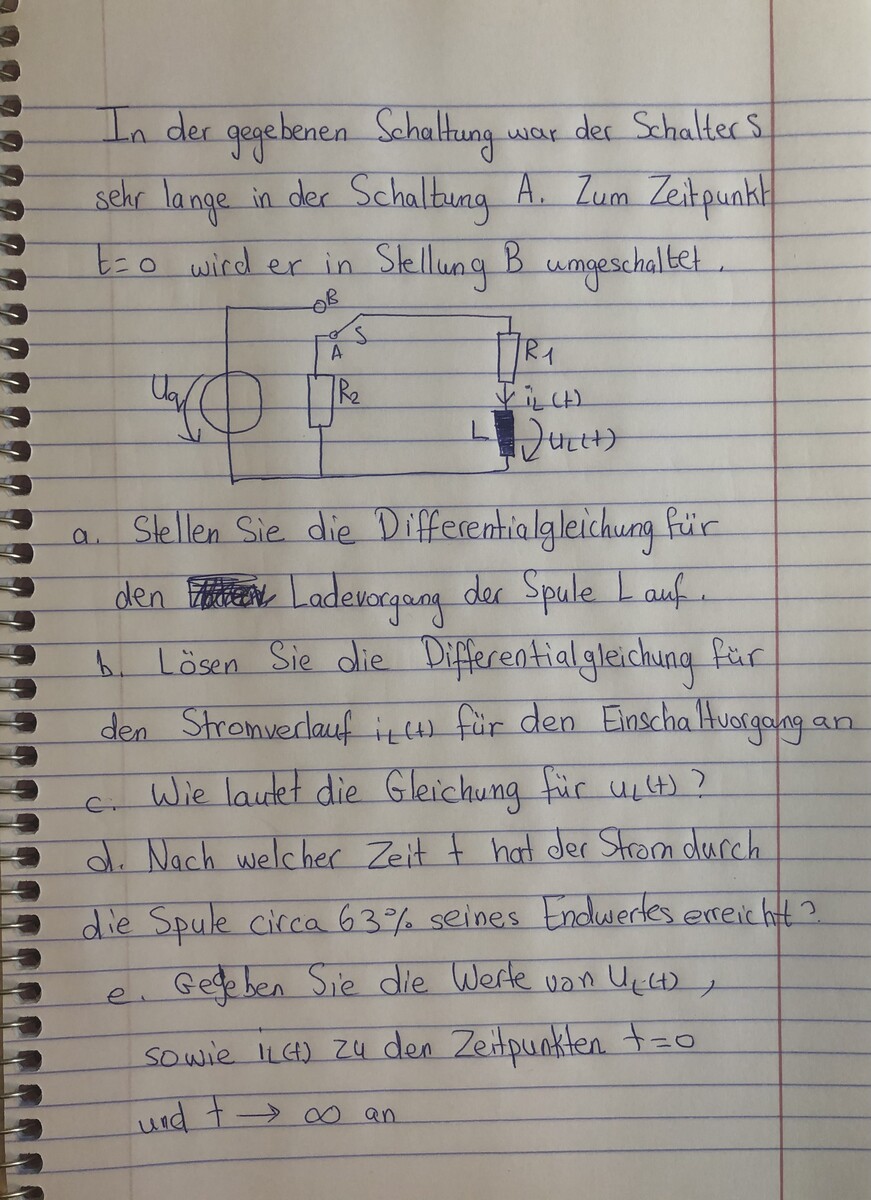 In der gegebenen Schaltung war der Schalter S
sehr lange in der Schaltung A. Zum Zeitpunkt
t=0 wird er in Stellung B umgeschaltet.
B
S
A
R1
Uq
R2
iL(t)
L
uL(t)
a. Stellen Sie die Differentialgleichung für
den Ladevorgang der Spule L auf.
b. Lösen Sie die Differentialgleichung für
den Stromverlauf iL(t) für den Einschaltvorgang an
c. Wie lautet die Gleichung für uL(t)?
d. Nach welcher Zeit t hat der Strom durch
die Spule circa 63% seines Endwertes erreicht?
e. Gegeben Sie die Werte von UL(t),
sowie iL(t) zu den Zeitpunkten t=0
und t → ∞ an